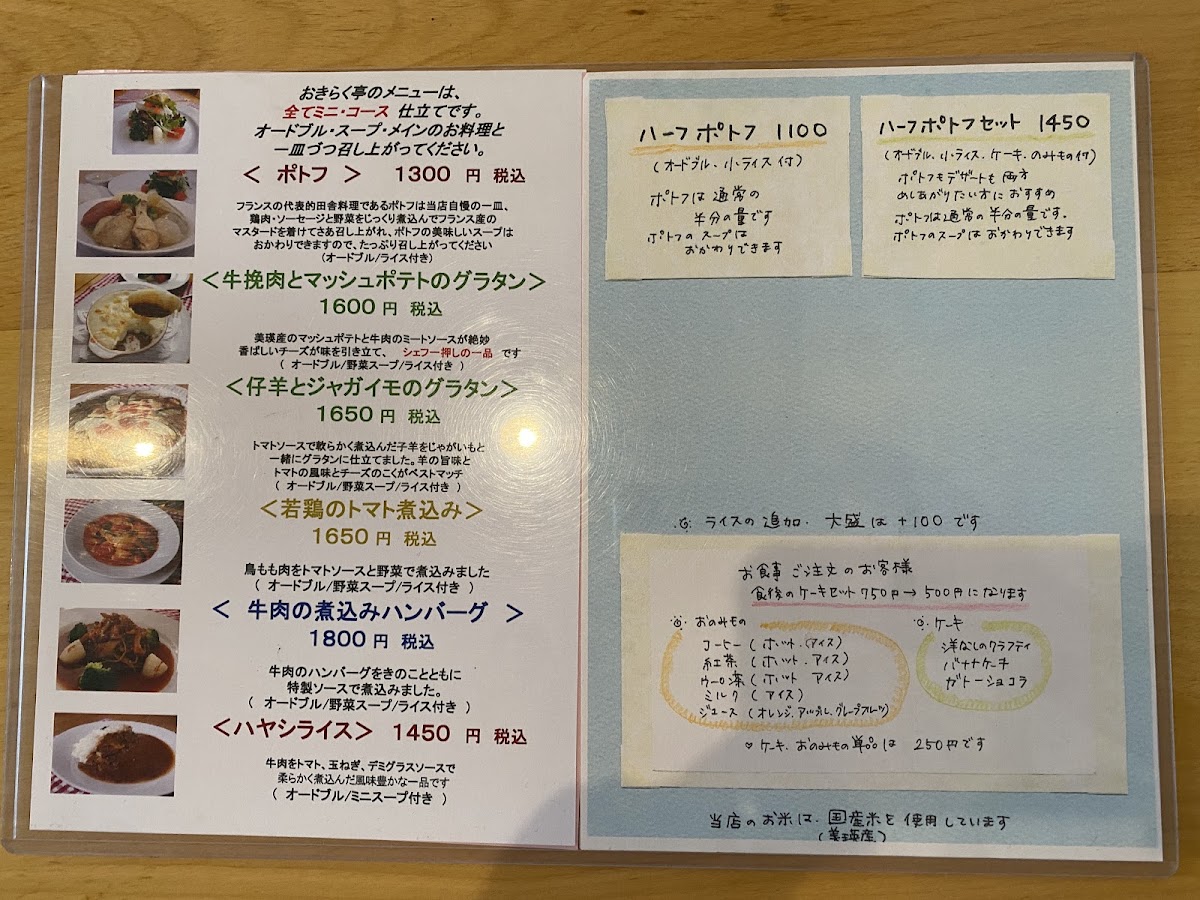 おきらく亭のメニューは、
全てミニ・コース 仕立てです。
オードブル・スープ・メインのお料理と
一皿づつ召し上がってください。
＜ ポトフ ＞ 1300 円 税込
フランスの代表的田舎料理であるポトフは当店自慢の一皿、
鶏肉・ソーセージと野菜をじっくり煮込んでフランス産の
マスタードを着けてさあ召し上がれ、ポトフの美味しいスープは
おかわりできますので、たっぷり召し上がってください
(オードブル/ライス付き)
＜牛挽肉とマッシュポテトのグラタン＞
1600 円 税込
美瑛産のマッシュポテトと牛肉のミートソースが絶妙
香ばしいチーズが味を引き立て、 シェフ一押しの一品 です
( オードブル/野菜スープ/ライス付き )
＜仔羊とジャガイモのグラタン＞
1650 円 税込
トマトソースで軟らかく煮込んだ子羊をじゃがいもと
一緒にグラタンに仕立てました。羊の旨味と
トマトの風味とチーズのこくがベストマッチ
( オードブル/野菜スープ/ライス付き )
＜若鶏のトマト煮込み＞
1650 円 税込
鳥もも肉をトマトソースと野菜で煮込みました
( オードブル/野菜スープ/ライス付き )
＜ 牛肉の煮込みハンバーグ ＞
1800 円 税込
牛肉のハンバーグをきのことともに
特製ソースで煮込みました。
( オードブル/野菜スープ/ライス付き )
＜ハヤシライス＞ 1450 円 税込
牛肉をトマト、玉ねぎ、デミグラスソースで
柔らかく煮込んだ風味豊かな一品です
( オードブル/ミニスープ付き )
ハーフ ポトフ 1100
(オードブル、小ライス付)
ポトフは通常の
半分の量です
ポトフのスープは
おかわりできます
ハーフポトフセット 1450
(オードブル、小ライス、ケーキ、のみもの付)
ポトフもデザートも両方
めしあがりたい方におすすめ
ポトフは通常の半分の量です。
ポトフのスープはおかわりできます
ライスの追加、大盛は +100 です
お食事ご注文のお客様
食後のケーキセット 750円→500円になります
おのみもの
コーヒー (ホット、アイス)
紅茶 (ホット、アイス)
ウーロン茶 (ホット アイス)
ミルク (アイス)
ジュース (オレンジ、アップル、グレープフルーツ)
ケーキ
洋なしのクラフティ
バナナケーキ
ガトーショコラ
♡ ケーキ、おのみもの単品は 250円です
当店のお米は、国産米を使用しています
(美瑛産)